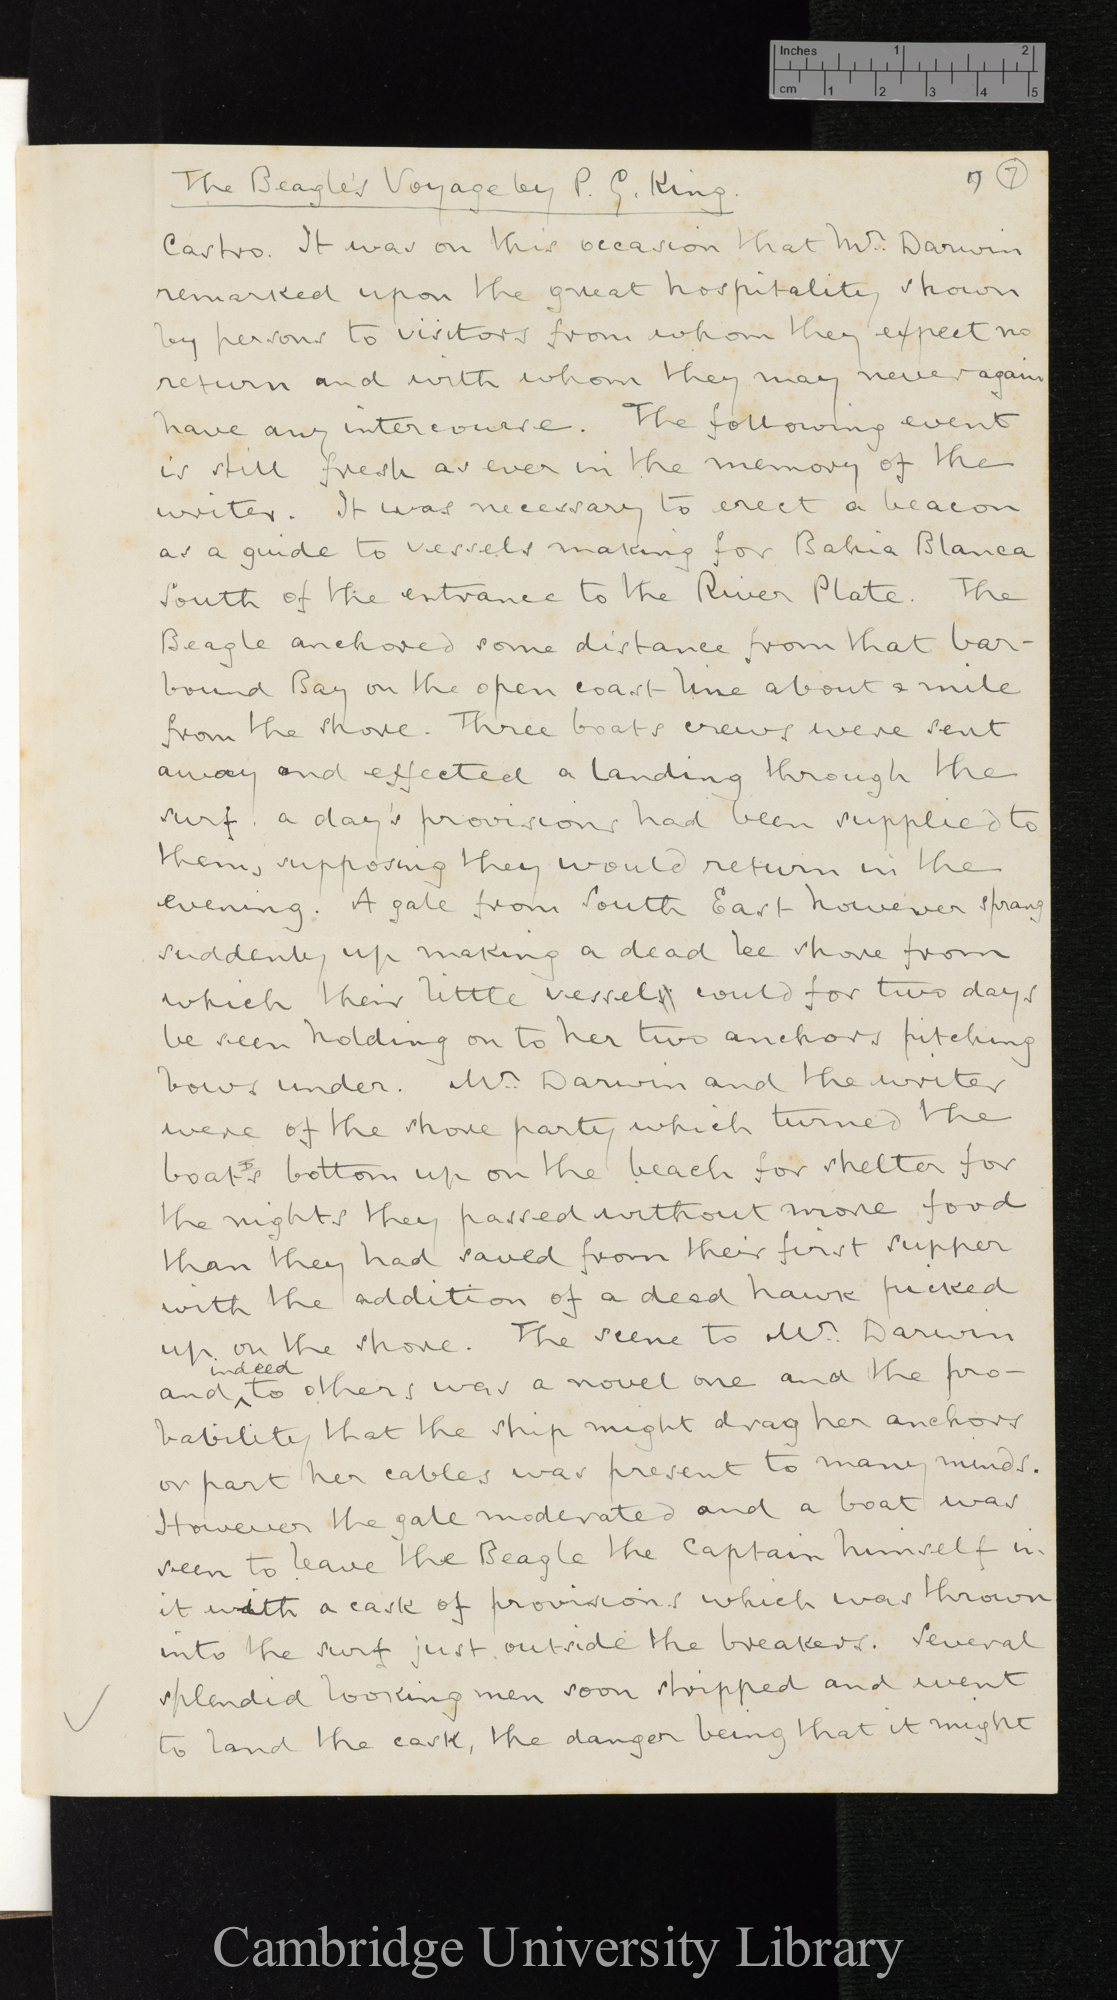 Inches 1 2
cm 1 2 3 4 5
The Beagle's Voyage by P. G. King.
7 7
Castro. It was on this occasion that Mr. Darwin
remarked upon the great hospitality shown
by persons to visitors from whom they expect no
return and with whom they may never again
have any intercourse. The following event
is still fresh as ever in the memory of the
writer. It was necessary to erect a beacon
as a guide to vessels making for Bahia Blanca
South of the entrance to the River Plate. The
Beagle anchored some distance from that bar-
bound Bay on the open coast line about a mile
from the shore. Three boats crews were sent
away and effected a landing through the
surf. a day's provisions had been supplied to
them, supposing they would return in the
evening. A gale from South East however sprang
suddenly up making a dead lee shore from
which their little vessel could for two days
be seen holding on to her two anchors pitching
bows under. Mr. Darwin and the writer
were of the shore party which turned the
boats bottom up on the beach for shelter for
the nights they passed without more food
than they had saved from their first supper
with the addition of a dead hawk picked
up on the shore. The scene to Mr. Darwin
indeed
and ^ to others was a novel one and the pro-
bability that the ship might drag her anchors
or part her cables was present to many minds.
However the gale moderated and a boat was
seen to leave the Beagle the Captain himself in
it with a cask of provisions which was thrown
into the surf just outside the breakers. Several
splendid looking men soon stripped and went
to land the cask, the danger being that it might
Cambridge University Library